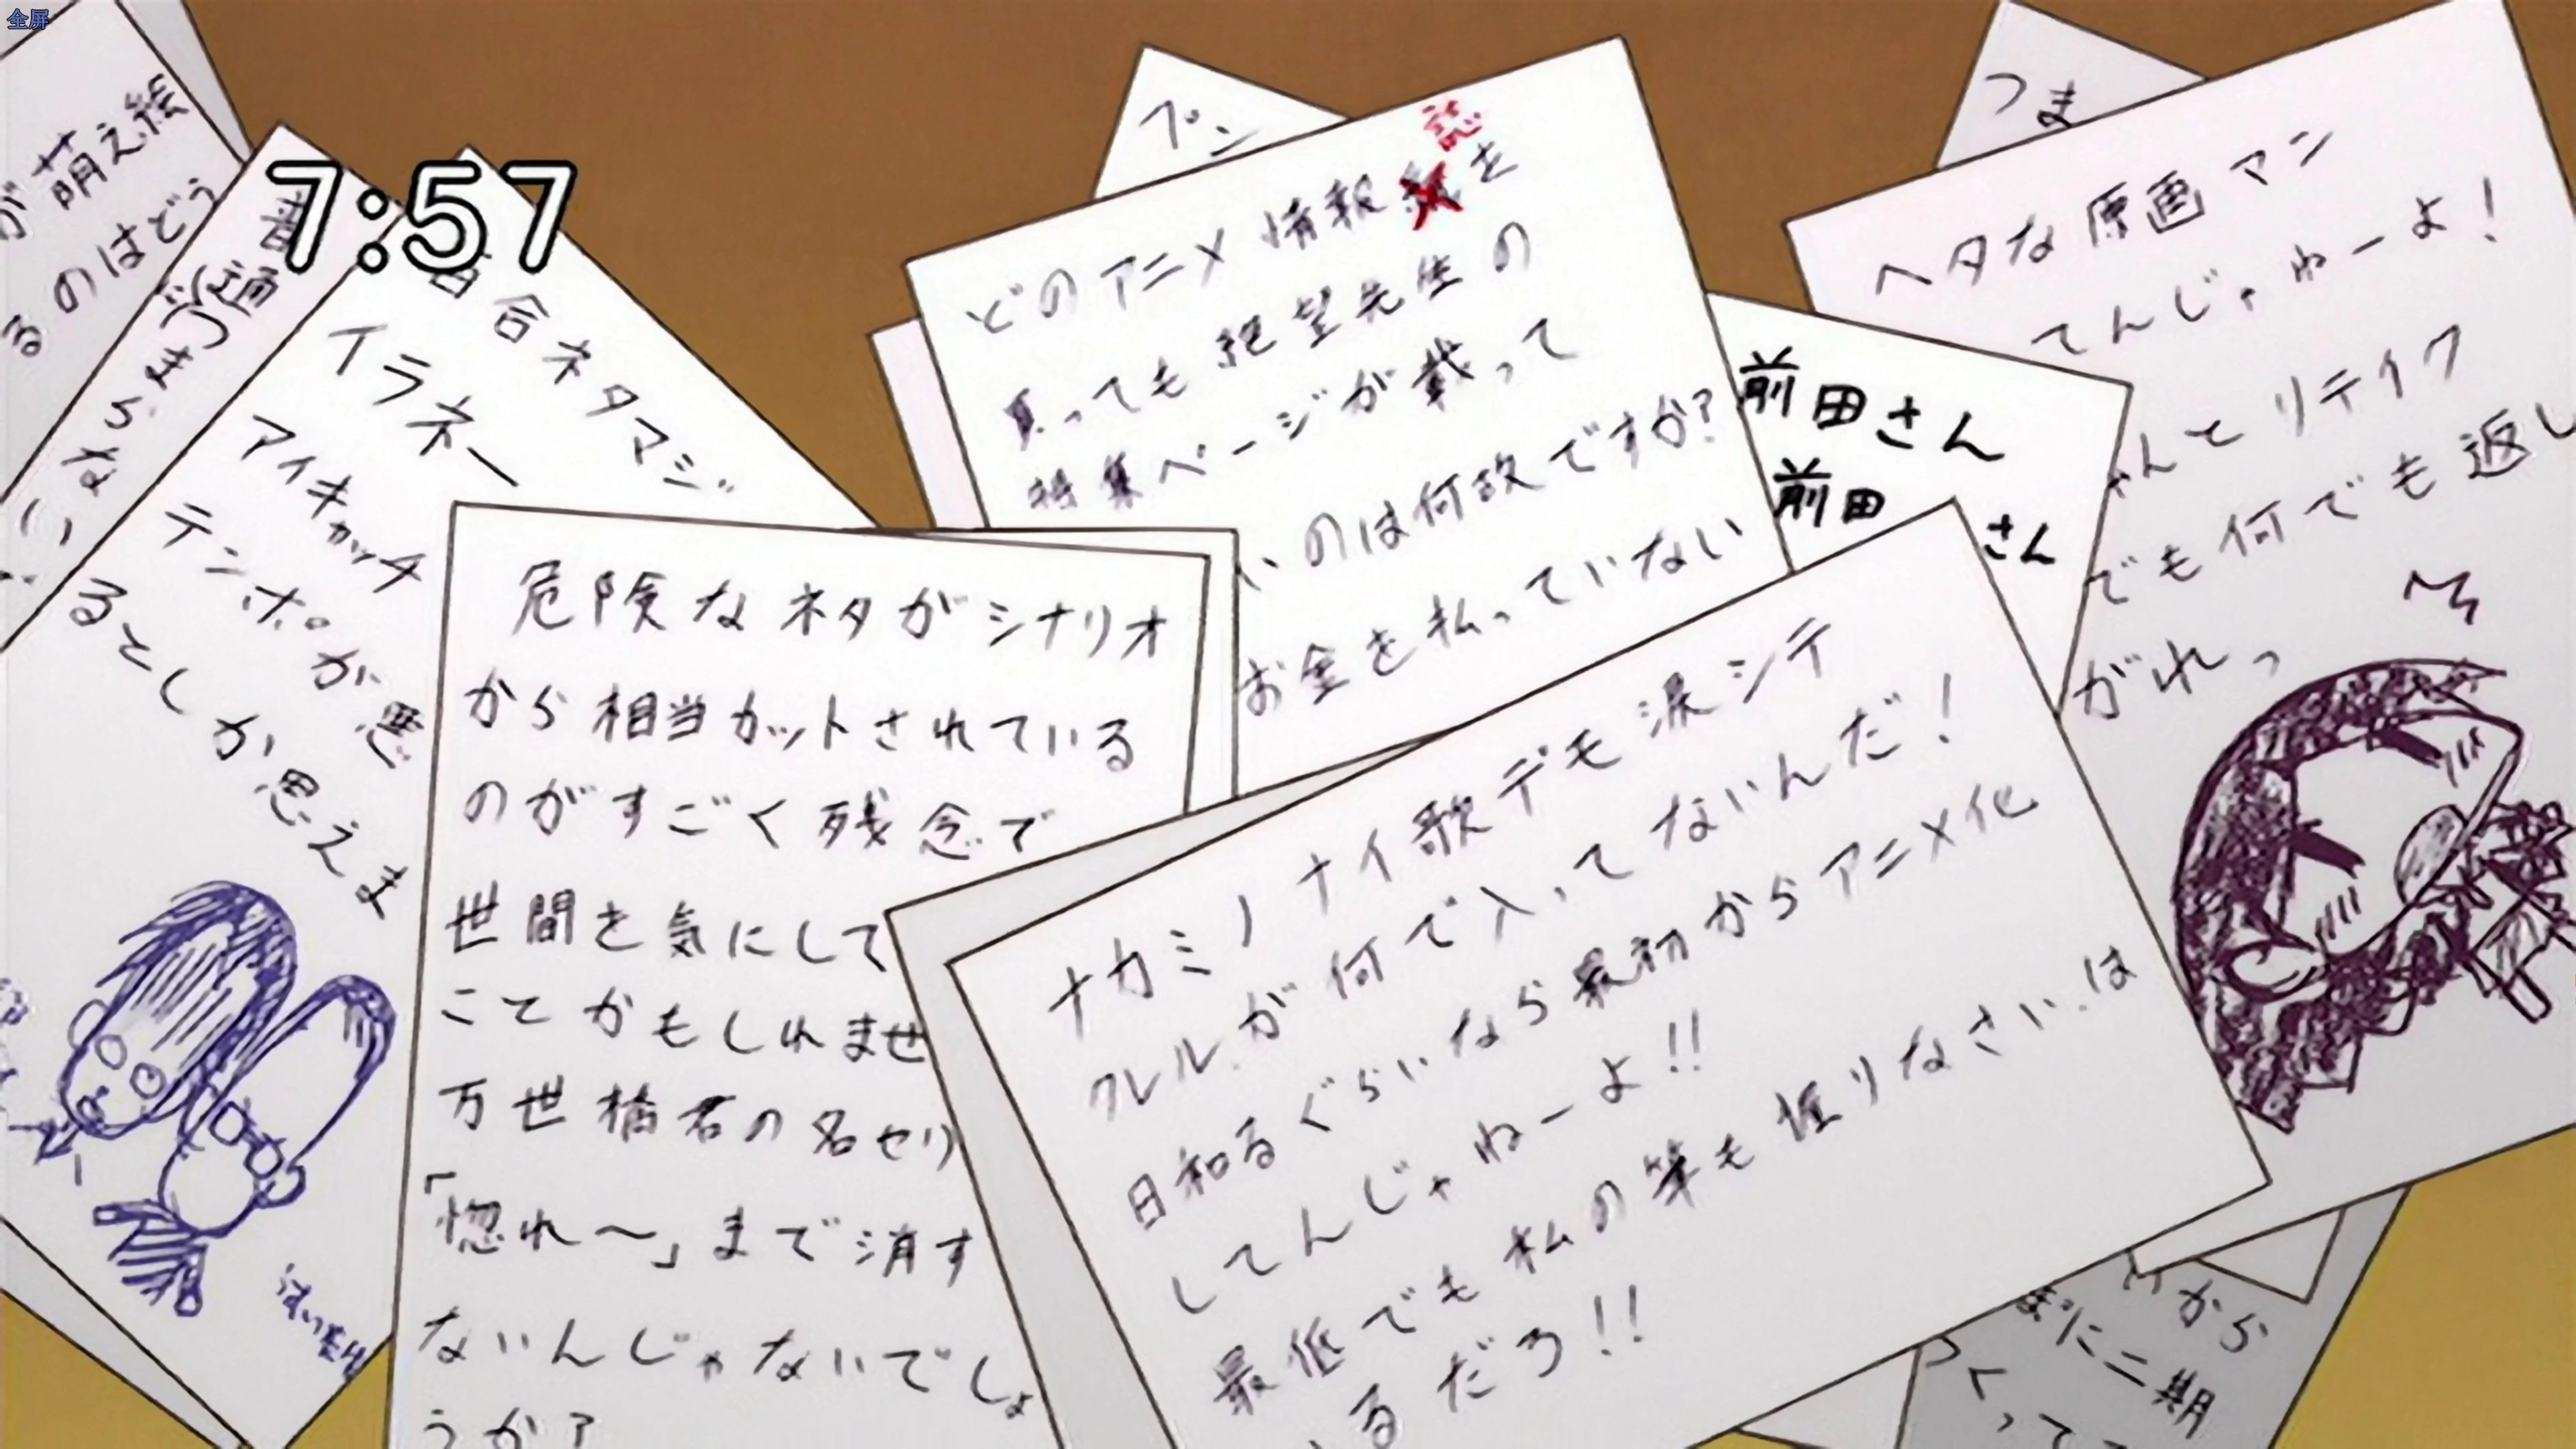 全屏
7:57
が萌え絵
るのはどう
普通
づき
らな
い
百合ネタマジ
イラネー
アイキャッチ
テンポが悪
るとしか思えま
プン
どのアニメ情報 誌を
買っても絶望先生の
特集ページが載って
いのは何故ですか?
お金を払っていない
つま
ヘタな原画マン
てんじゃねーよ!
ゃんとリテイク
でも何でも返し
がれっ
前田さん
前田さん
危険なネタがシナリオ
から相当カットされている
のがすごく残念で
世間を気にして
こて かもしれませ
万世橋君の名セリ
「惚れ〜」まで消す
ないんじゃないでしょ
うか?
ナカミノナイ歌デモ涙シテ
クレルが何で入ってないんだ!
日和るぐらいなら最初からアニメ化
してんじゃねーよ!!
最低でも私の筆も握りなさい は
いるだろ!!
から
まに二期
くって